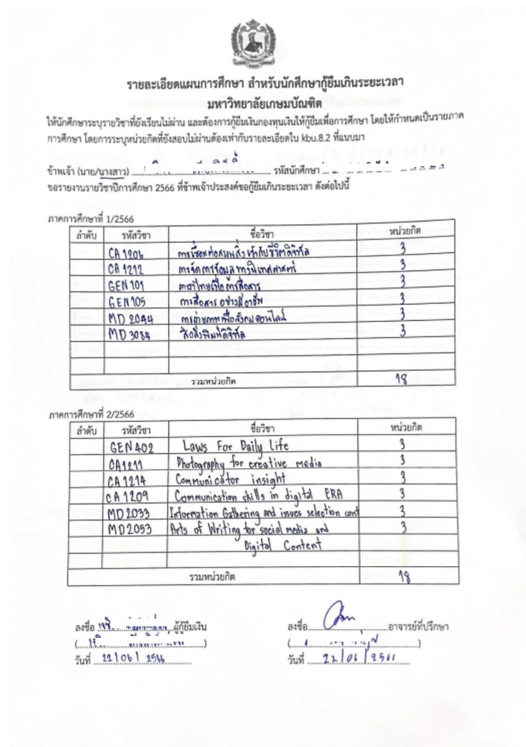 รายละเอียดแผนการศึกษา สำหรับนักศึกษากู้ยืมเกินระยะเวลา
มหาวิทยาลัยเกษมบัณฑิต
ให้นักศึกษาระบุรายวิชาที่ยังเรียนไม่ผ่าน และต้องการกู้ยืมเงินกองทุนเงินให้กู้ยืมเพื่อการศึกษา โดยให้กำหนดเป็นรายภาค
การศึกษา โดยการระบุหน่วยกิตที่ยังสอบไม่ผ่านต้องเท่ากับรายละเอียดใน kbu.8.2 ที่แนบมา
ข้าพเจ้า (นาย/นางสาว) รหัสนักศึกษา
ขอรายงานรายวิชาปีการศึกษา 2566 ที่ข้าพเจ้าประสงค์ขอกู้ยืมเกินระยะเวลา ดังต่อไปนี้
ภาคการศึกษาที่ 1/2566
ลำดับ รหัสวิชา ชื่อวิชา หน่วยกิต
CA 1206 3
CA 1212 การจัดการข้อมูลทางนิเทศศาสตร์ 3
GEN 101 ภาษาไทยเพื่อการสื่อสาร 3
GEN 105 การสื่อสารอย่างมืออาชีพ 3
MD 2044 การถ่ายภาพเพื่อสังคมออนไลน์ 3
MD 3034 สื่อสิ่งพิมพ์ดิจิทัล 3
รวมหน่วยกิต 18
ภาคการศึกษาที่ 2/2566
ลำดับ รหัสวิชา ชื่อวิชา หน่วยกิต
GEN 402 Laws For Daily Life 3
CA 1211 Photography for creative media 3
CA 1214 Communicator insight 3
CA 1209 Communication skills in digital ERA 3
MD 2033 Information Gathering and issues selection cont 3
MD 2053 Arts of Writing for social media and 3
Digital Content
รวมหน่วยกิต 18
ลงชื่อ ผู้กู้ยืมเงิน ลงชื่อ อาจารย์ที่ปรึกษา
วันที่ 22/06/2566 วันที่ 22/06/2566